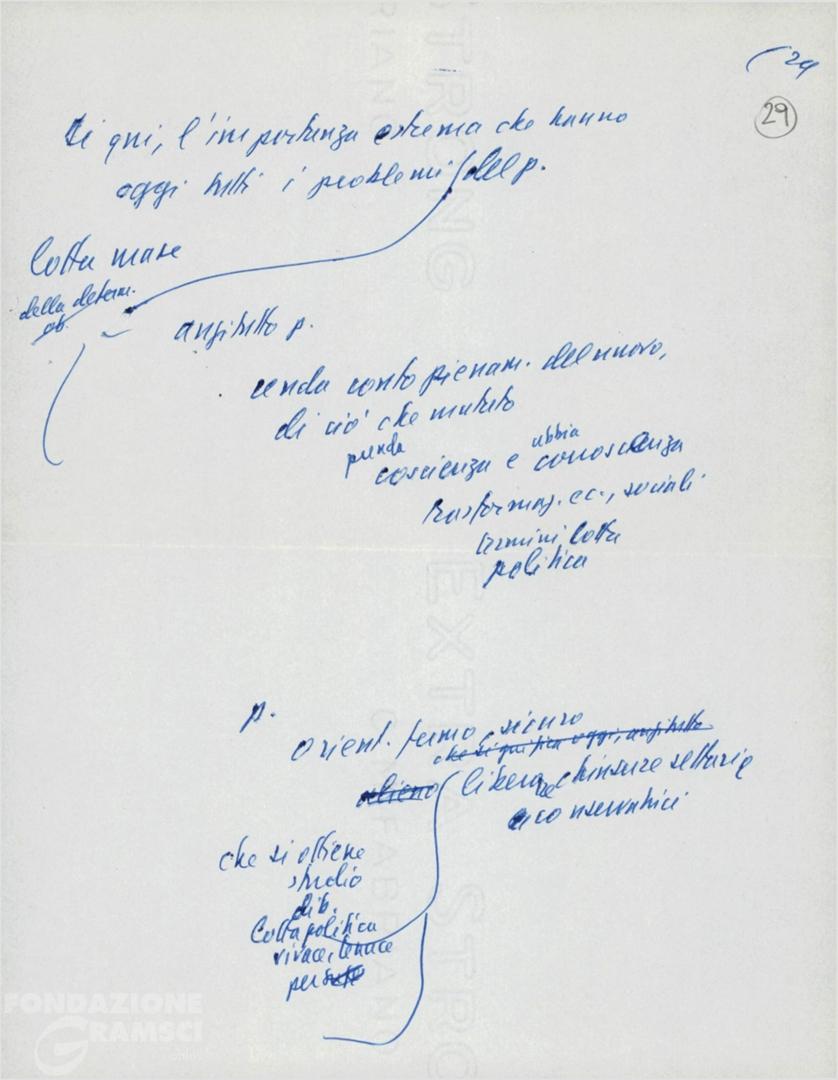 29
29
di qui, l'importanza estrema che hanno
oggi tutti i problemi del p.
lotta masse
della determ.
ob.
anzitutto p.
renda conto pienam. del nuovo,
di ciò che mutato
prenda abbia
coscienza e conoscenza
trasformaz. ec., sociali
termini lotta
politica
p.
orient. fermo, sicuro
che significa oggi, anzitutto
alieno libero da chiusure settarie
e conservatrici
che si ottiene
studio
dib.
lotta politica
vivace, tenace
per
FONDAZIONE
GRAMSCI